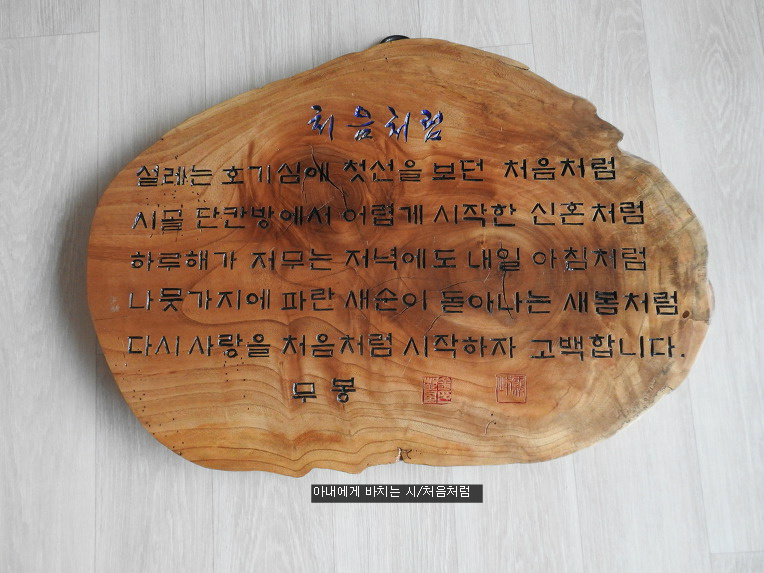 처음처럼
설레는 호기심에 첫선을 보던 처음처럼
시골 단칸방에서 어렵게 시작한 신혼처럼
하루해가 저무는 저녁에도 내일 아침처럼
나뭇가지에 파란 새순이 돋아나는 새봄처럼
다시 사랑을 처음처럼 시작하자 고백합니다.
무봉
아내에게 바치는 시/처음처럼